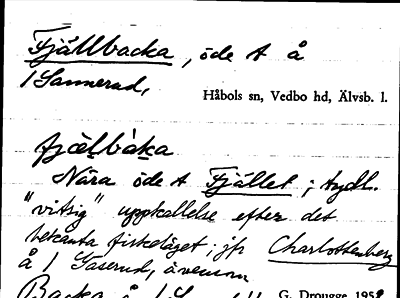 Fjällbacka, öde t å
1 Sannerud,
Håbols sn, Vedbo hd, Älvsb. l.
fjæ̀l̥bàka
Nära öde t Fjället; tydl.
"vitsig" uppkallelse efter det
bekanta fiskeläget; jfr Charlottenberg
å 1 Gaserud, ävensom
Backa å 1
G. Drougge 1952